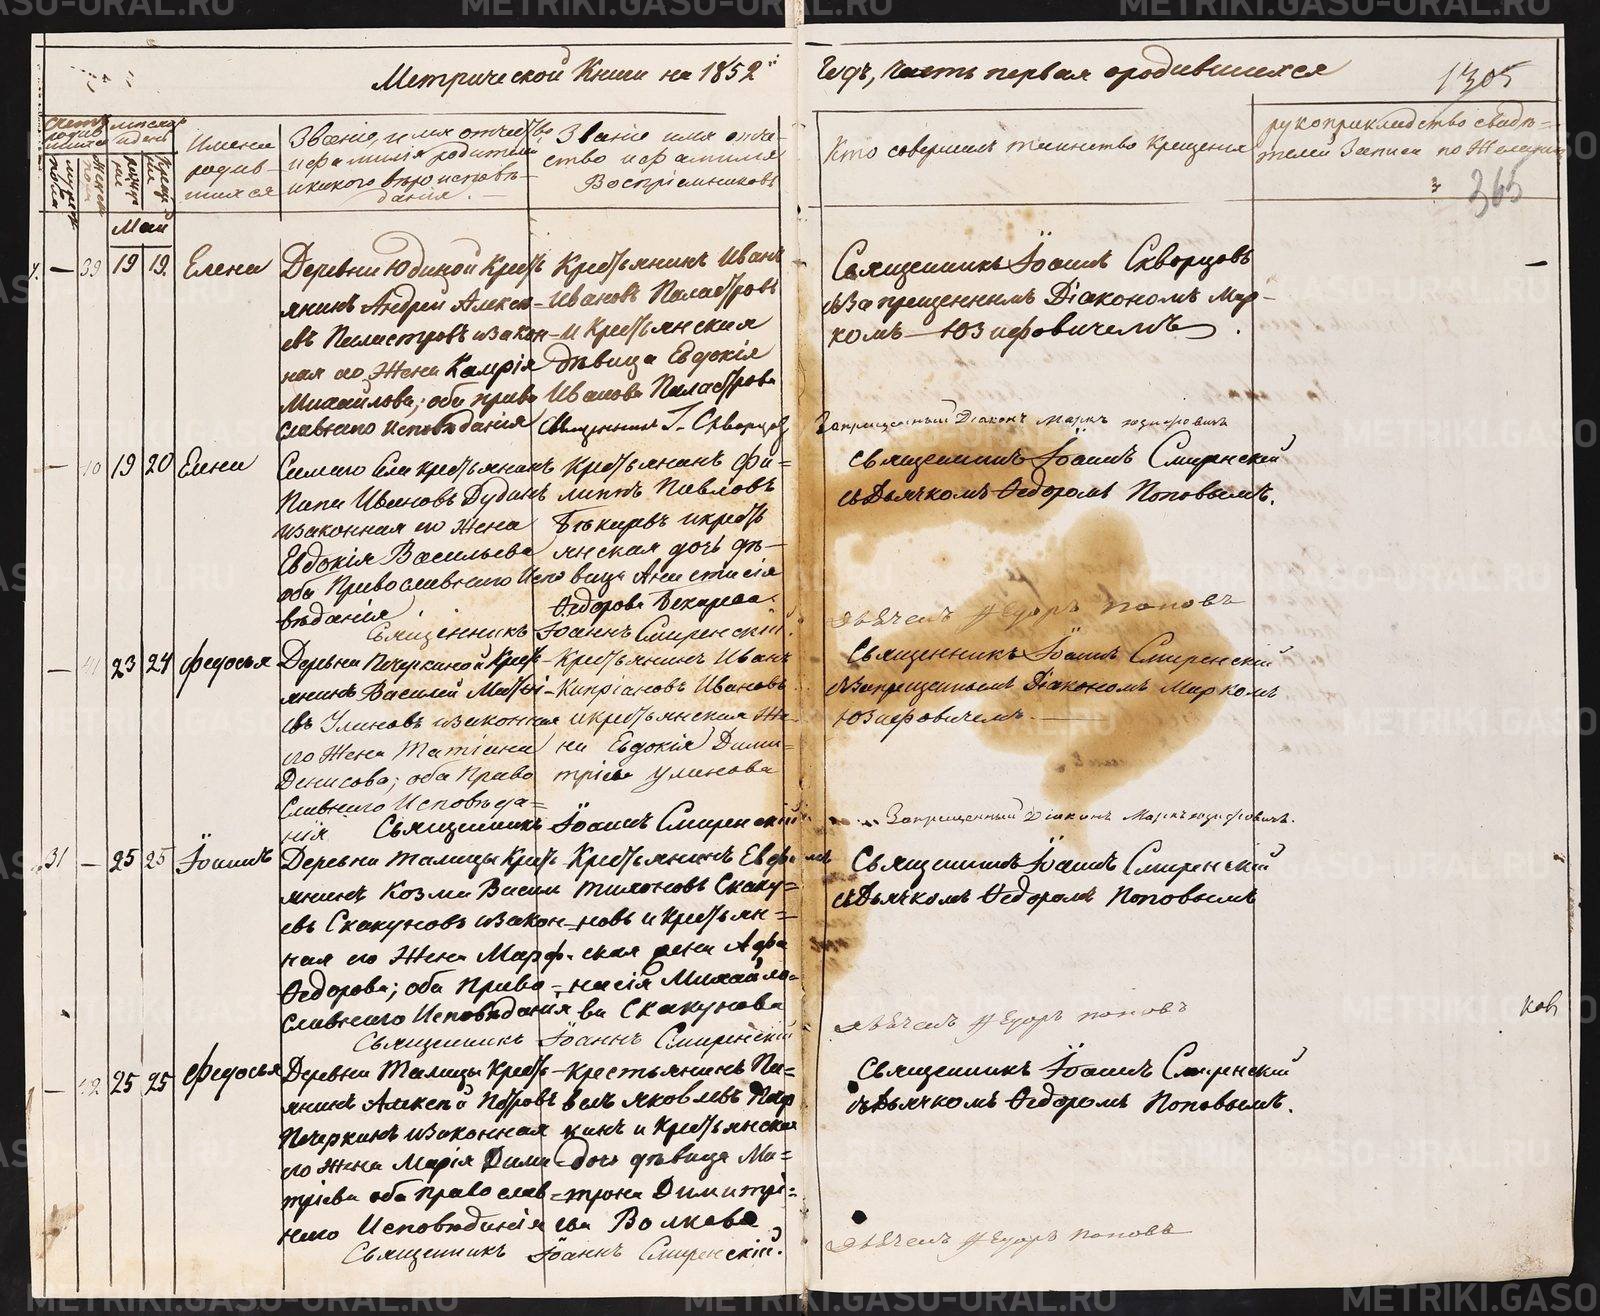 METRIKI.GASU-URAL.RU
Метрической Книги на 1852й
Годъ, Часть первая о родившихся
1305
365
Счетъ родившихся
Мѣсяцъ и день
Имена родившихся
Званіе, имя отчество и фамилія родителей и какого вѣроисповѣданія.
Званіе имя отчество и фамилія Воспріемниковъ
Кто совершалъ таинство Крещенія
рукоприкладство свидѣтелей Записи по Желанію
Май
— 39 19 19. Елена
Деревни Юдиной Кресть
янинъ Андрей Алексѣ
евъ Паластровъ и закон
ная его Жена
Михайлова; оба право
славнаго исповѣданія
Крестьянинъ Иванъ
Ивановъ Паластровъ
и Крестьянская
дѣвица Евдокія
Иванова Паластрова
Священникъ І. Скворцовъ
Священникъ Іоаннъ Скворцовъ
съ Запрещеннымъ Діакономъ Мар-
комъ Юзифовичемъ.
Запрещенный Діаконъ Маркъ Юзифовичъ
— 40 19 20 Елена
Самаго Села крестьянинъ
Иванов Дудинъ
и законная его Жена
Евдокія Васильева
оба Православнаго Испо
вѣданія
Крестьянинъ Фи=
липпъ Павловъ
Бѣкаревъ и кресть
янская дочь дѣ-
вица Анастасія
Ѳедорова Бекарева.
Священникъ Іоаннъ Смиренскій.
Священникъ Іоаннъ Смиренскій
съ Дьячкомъ Ѳедоромъ Поповымъ.
Дьячекъ Ѳедоръ Поповъ
— 41 23 24 Федосья
Деревни Печеркиной Кресть-
янинъ Василей Матѳі-
евъ Улиновъ и законная
его Жена Татіана
Денисова; оба Право
славнаго Исповѣда=
нія
Крестьянинъ Иванъ
Кипріановъ Ивановъ
и крестьянская Же-
на Евдокія Дими-
тріева Улинова
Священникъ Іоаннъ Смиренскій
Священникъ Іоаннъ Смиренскій
съ Запрещеннымъ Діакономъ Маркомъ
Юзифовичемъ.
Запрещенный Діаконъ Маркъ Юзифовичъ.
31 — 25 25 Іоаннъ
Деревни Талицы Кресть
янинъ Козма Васил
евъ Скакуновъ и закон
ная его Жена Марѳ.
Ѳедорова; оба Право=
славнаго Исповѣданія
Крестьянинъ
Скаку=
новъ и Крестьян=
ская жена Афа
насія Михайло=
ва Скакунова
Священникъ Іоаннъ Смиренскій
Священникъ Іоаннъ Смиренскій
съ Дьячкомъ Ѳедоромъ Поповымъ
Дьячекъ Ѳедоръ Поповъ
— 42 25 25 Федосья
Деревни Талицы Кресть-
янинъ Алексѣй Петровъ
Печеркинъ и законная
его Жена Марія Дими
тріева оба православ=
наго Исповѣданія
Крестьянинъ Па=
велъ Яковлевъ
и Крестьянская
дочь дѣвица Ма=
трона Димитрі=
ева Волкова
Священникъ Іоаннъ Смиренскій.
Священникъ Іоаннъ Смиренскій
съ Дьячкомъ Ѳедоромъ Поповымъ.
Дьячекъ Ѳедоръ Поповъ
ков
METRIKI.GASU-URAL.RU